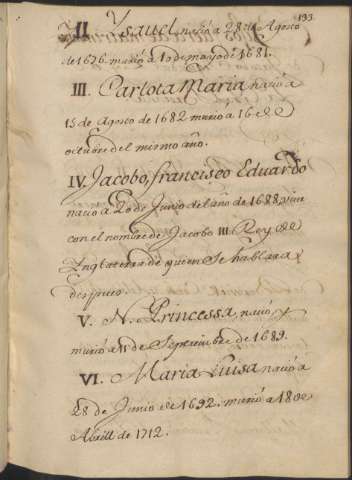 193.
II Ysavel nacio a 28 de Agosto
de 1676. murió a 10 de mayo de 1681.
III. Carlota Maria nacio a
15 de Agosto de 1682 murio a 16 de
octubre del mismo año.
IV. Jacobo, francisco Eduardo
nacio a 20 de Junio del año de 1688 vive
con el nombre de Jacobo III. Rey de
Inglaterra de quien se hablara
despues.
V. N. Princessa nacio, y
murió a de Septiembre de 1689.
VI. Maria Luisa nacio a
28 de Junio de 1692. murió a 18 de
Abrill de 1712.